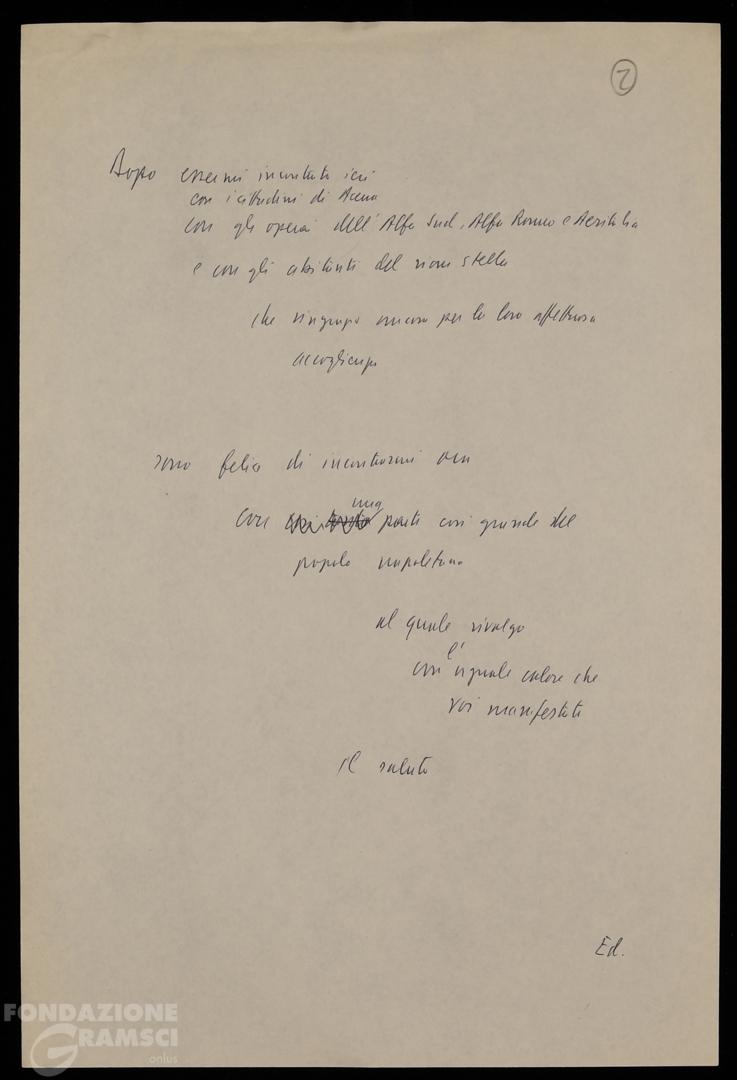 2
Dopo essermi incontrato ieri
con i cittadini di Acerra
con gli operai dell'Alfa Sud, Alfa Romeo e Aeritalia
e con gli abitanti del rione stella
che ringrazio ancora per la loro affettuosa
accoglienza
sono felice di incontrarmi ora
una
con parte così grande del
popolo napoletano
al quale rivolgo
con l'uguale calore che
voi manifestate
il saluto
Ed.
FONDAZIONE
GRAMSCI
onlus